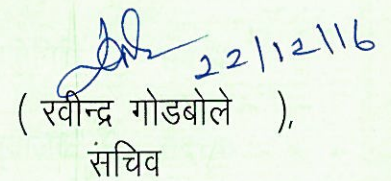 22/12/16
( रवीन्द्र गोडबोले ),
संचिव